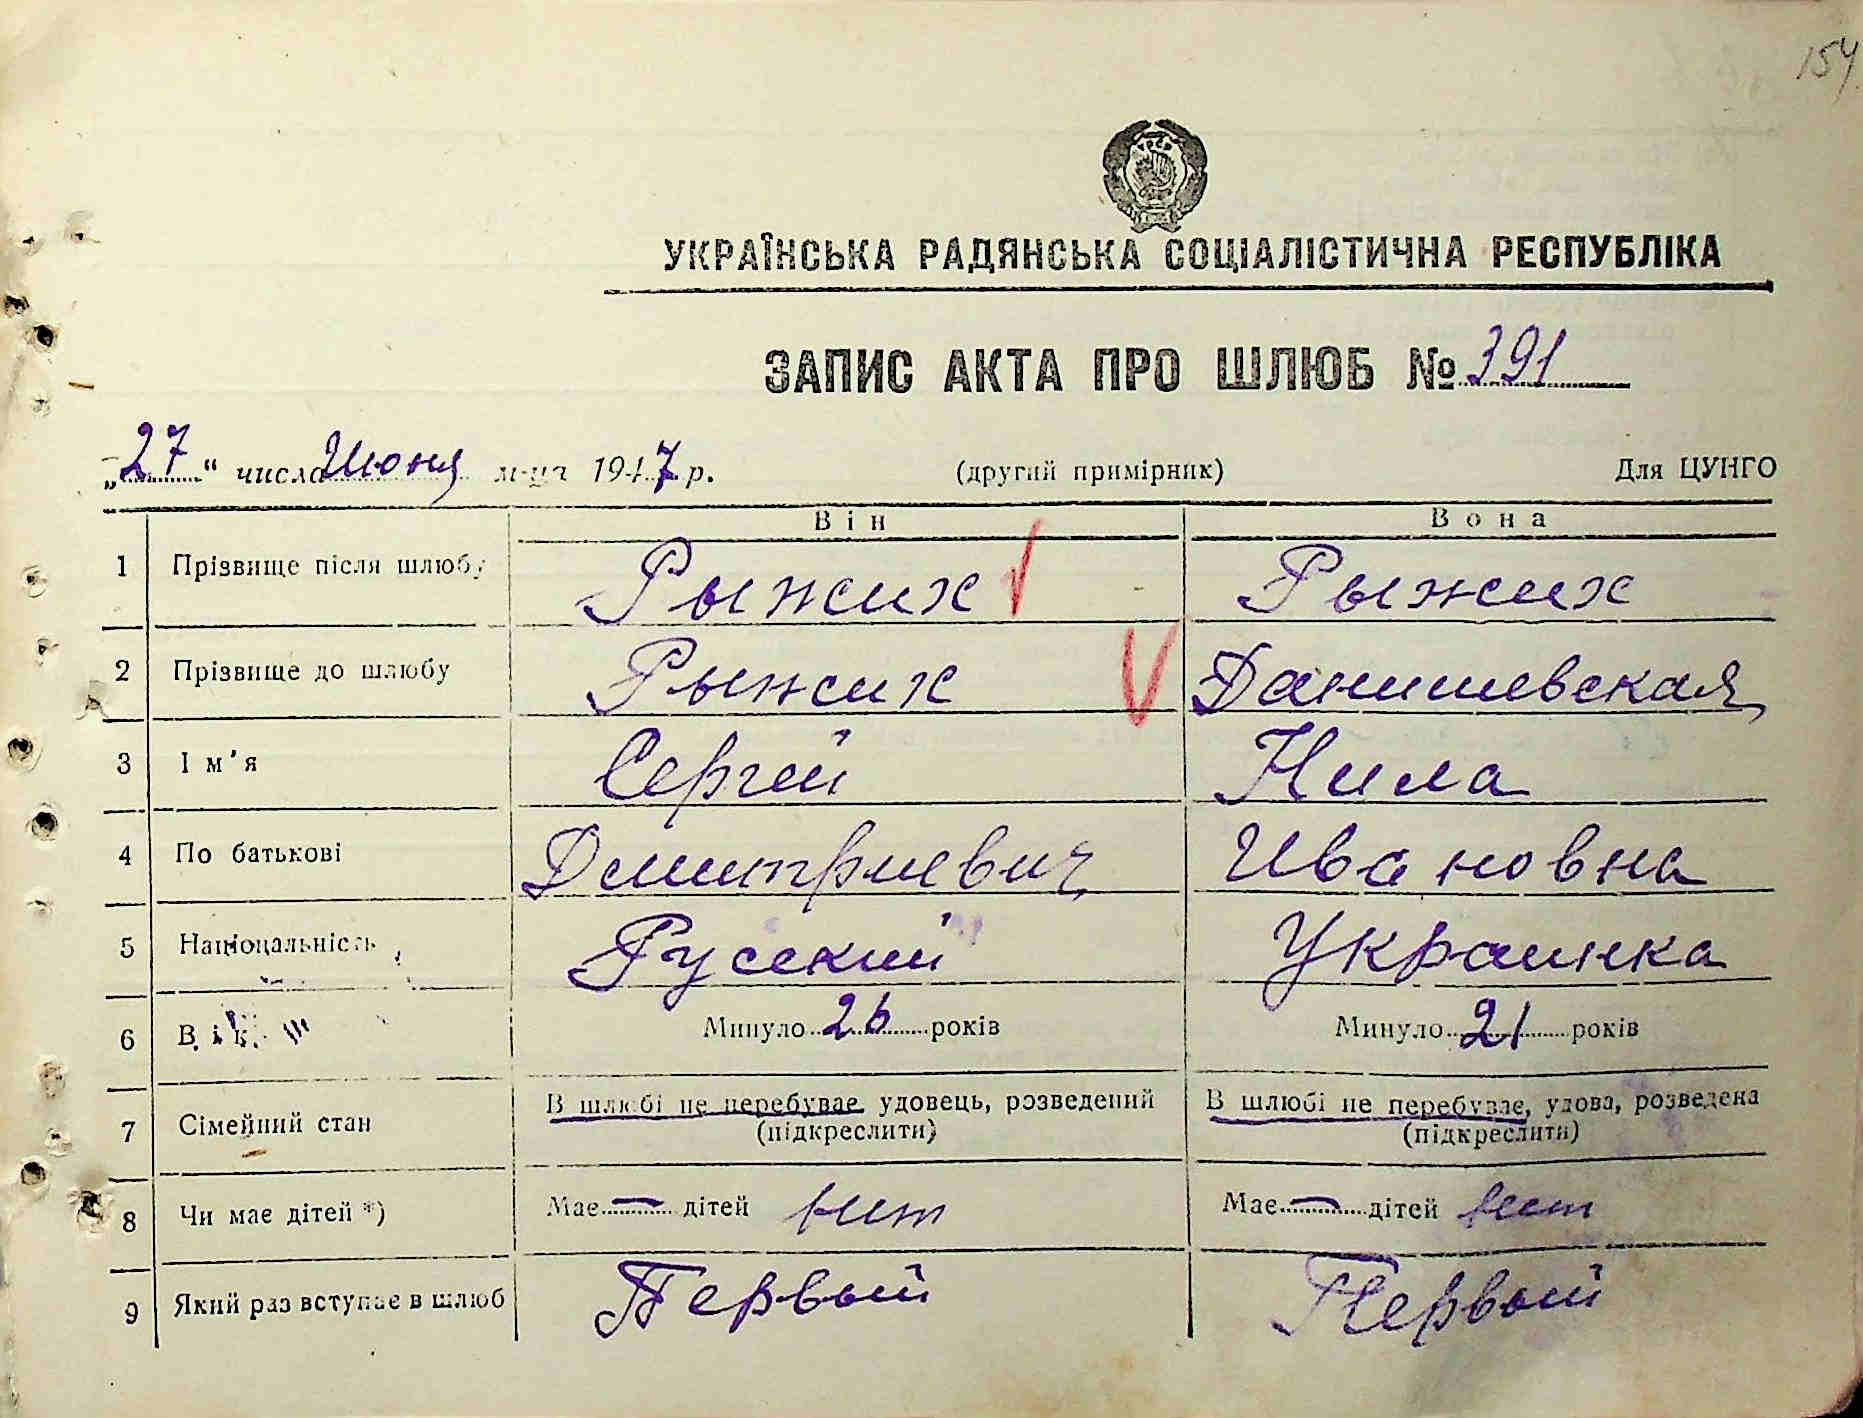 154
УКРАЇНСЬКА РАДЯНСЬКА СОЦІАЛІСТИЧНА РЕСПУБЛІКА
ЗАПИС АКТА ПРО ШЛЮБ № 391
„27“ числа Июня м-ця 1947 р. (другий примірник) Для ЦУНГО
Він Вона
1 Прізвище після шлюбу Рыжих Рыжих
2 Прізвище до шлюбу Рыжих Данишевская
3 Ім'я Сергей Нила
4 По батькові Дмитриевич Ивановна
5 Національність Русский Украинка
6 Вік Минуло 26 років Минуло 21 років
7 Сімейний стан В шлюбі не перебуває, удовець, розведений В шлюбі не перебуває, удова, розведена
(підкреслити) (підкреслити)
8 Чи має дітей *) Має — дітей нет Має — дітей нет
9 Який раз вступає в шлюб Первый Первый